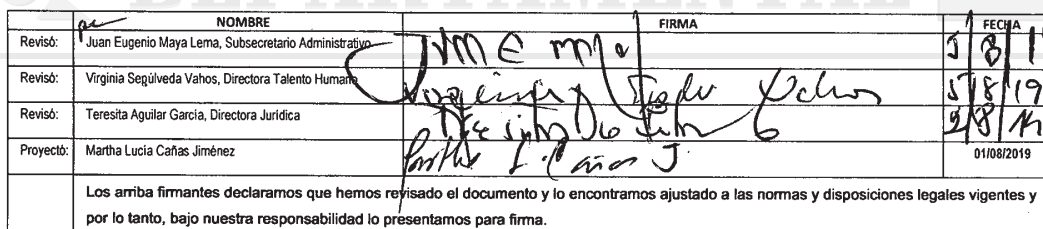 NOMBRE FIRMA FECHA
Revisó: Juan Eugenio Maya Lema, Subsecretario Administrativo
Revisó: Virginia Sepúlveda Vahos, Directora Talento Humano 5/8/19
Revisó: Teresita Aguilar García, Directora Jurídica
Proyectó: Martha Lucia Cañas Jiménez Martha L. Cañas J. 01/08/2019
Los arriba firmantes declaramos que hemos revisado el documento y lo encontramos ajustado a las normas y disposiciones legales vigentes y
por lo tanto, bajo nuestra responsabilidad lo presentamos para firma.